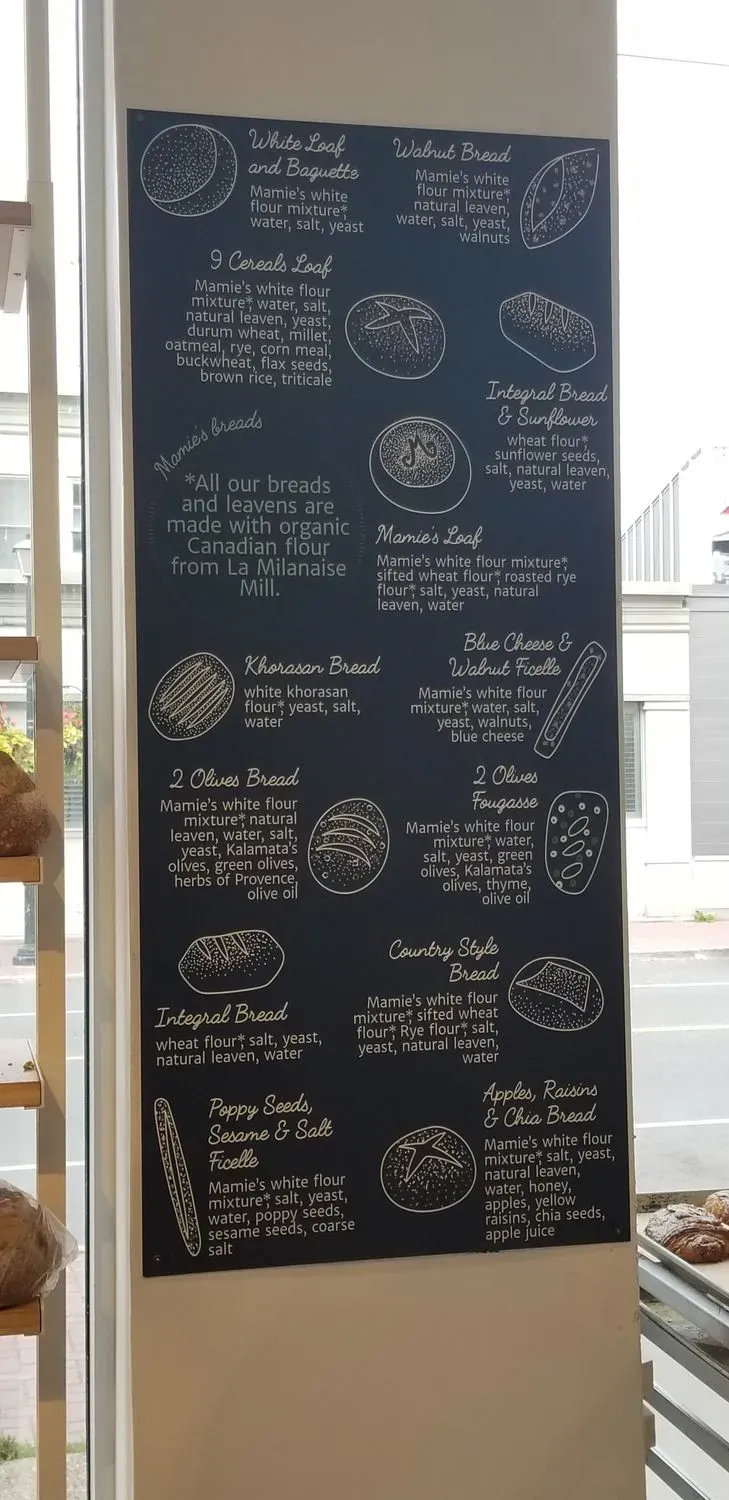 White Loaf
and Baguette
Mamie's white
flour mixture*,
water, salt, yeast
Walnut Bread
Mamie's white
flour mixture*,
natural leaven,
water, salt, yeast,
walnuts
9 Cereals Loaf
Mamie's white flour
mixture*, water, salt,
natural leaven, yeast,
durum wheat, millet,
oatmeal, rye, corn meal,
buckwheat, flax seeds,
brown rice, triticale
Integral Bread
& Sunflower
wheat flour*,
sunflower seeds,
salt, natural leaven,
yeast, water
Mamie's breads
*All our breads
and leavens are
made with organic
Canadian flour
from La Milanaise
Mill.
M
Mamie's Loaf
Mamie's white flour mixture*,
sifted wheat flour*, roasted rye
flour*, salt, yeast, natural
leaven, water
Khorasan Bread
white khorasan
flour*, yeast, salt,
water
Blue Cheese &
Walnut Ficelle
Mamie's white flour
mixture*, water, salt,
yeast, walnuts,
blue cheese
2 Olives Bread
Mamie's white flour
mixture*, natural
leaven, water, salt,
yeast, Kalamata's
olives, green olives,
herbs of Provence,
olive oil
2 Olives
Fougasse
Mamie's white flour
mixture*, water,
salt, yeast, green
olives, Kalamata's
olives, thyme,
olive oil
Integral Bread
wheat flour*, salt, yeast,
natural leaven, water
Country Style
Bread
Mamie's white flour
mixture*, sifted wheat
flour*, Rye flour*, salt,
yeast, natural leaven,
water
Poppy Seeds,
Sesame & Salt
Ficelle
Mamie's white flour
mixture*, salt, yeast,
water, poppy seeds,
sesame seeds, coarse
salt
Apples, Raisins
& Chia Bread
Mamie's white flour
mixture*, salt, yeast,
natural leaven,
water, honey,
apples, yellow
raisins, chia seeds,
apple juice